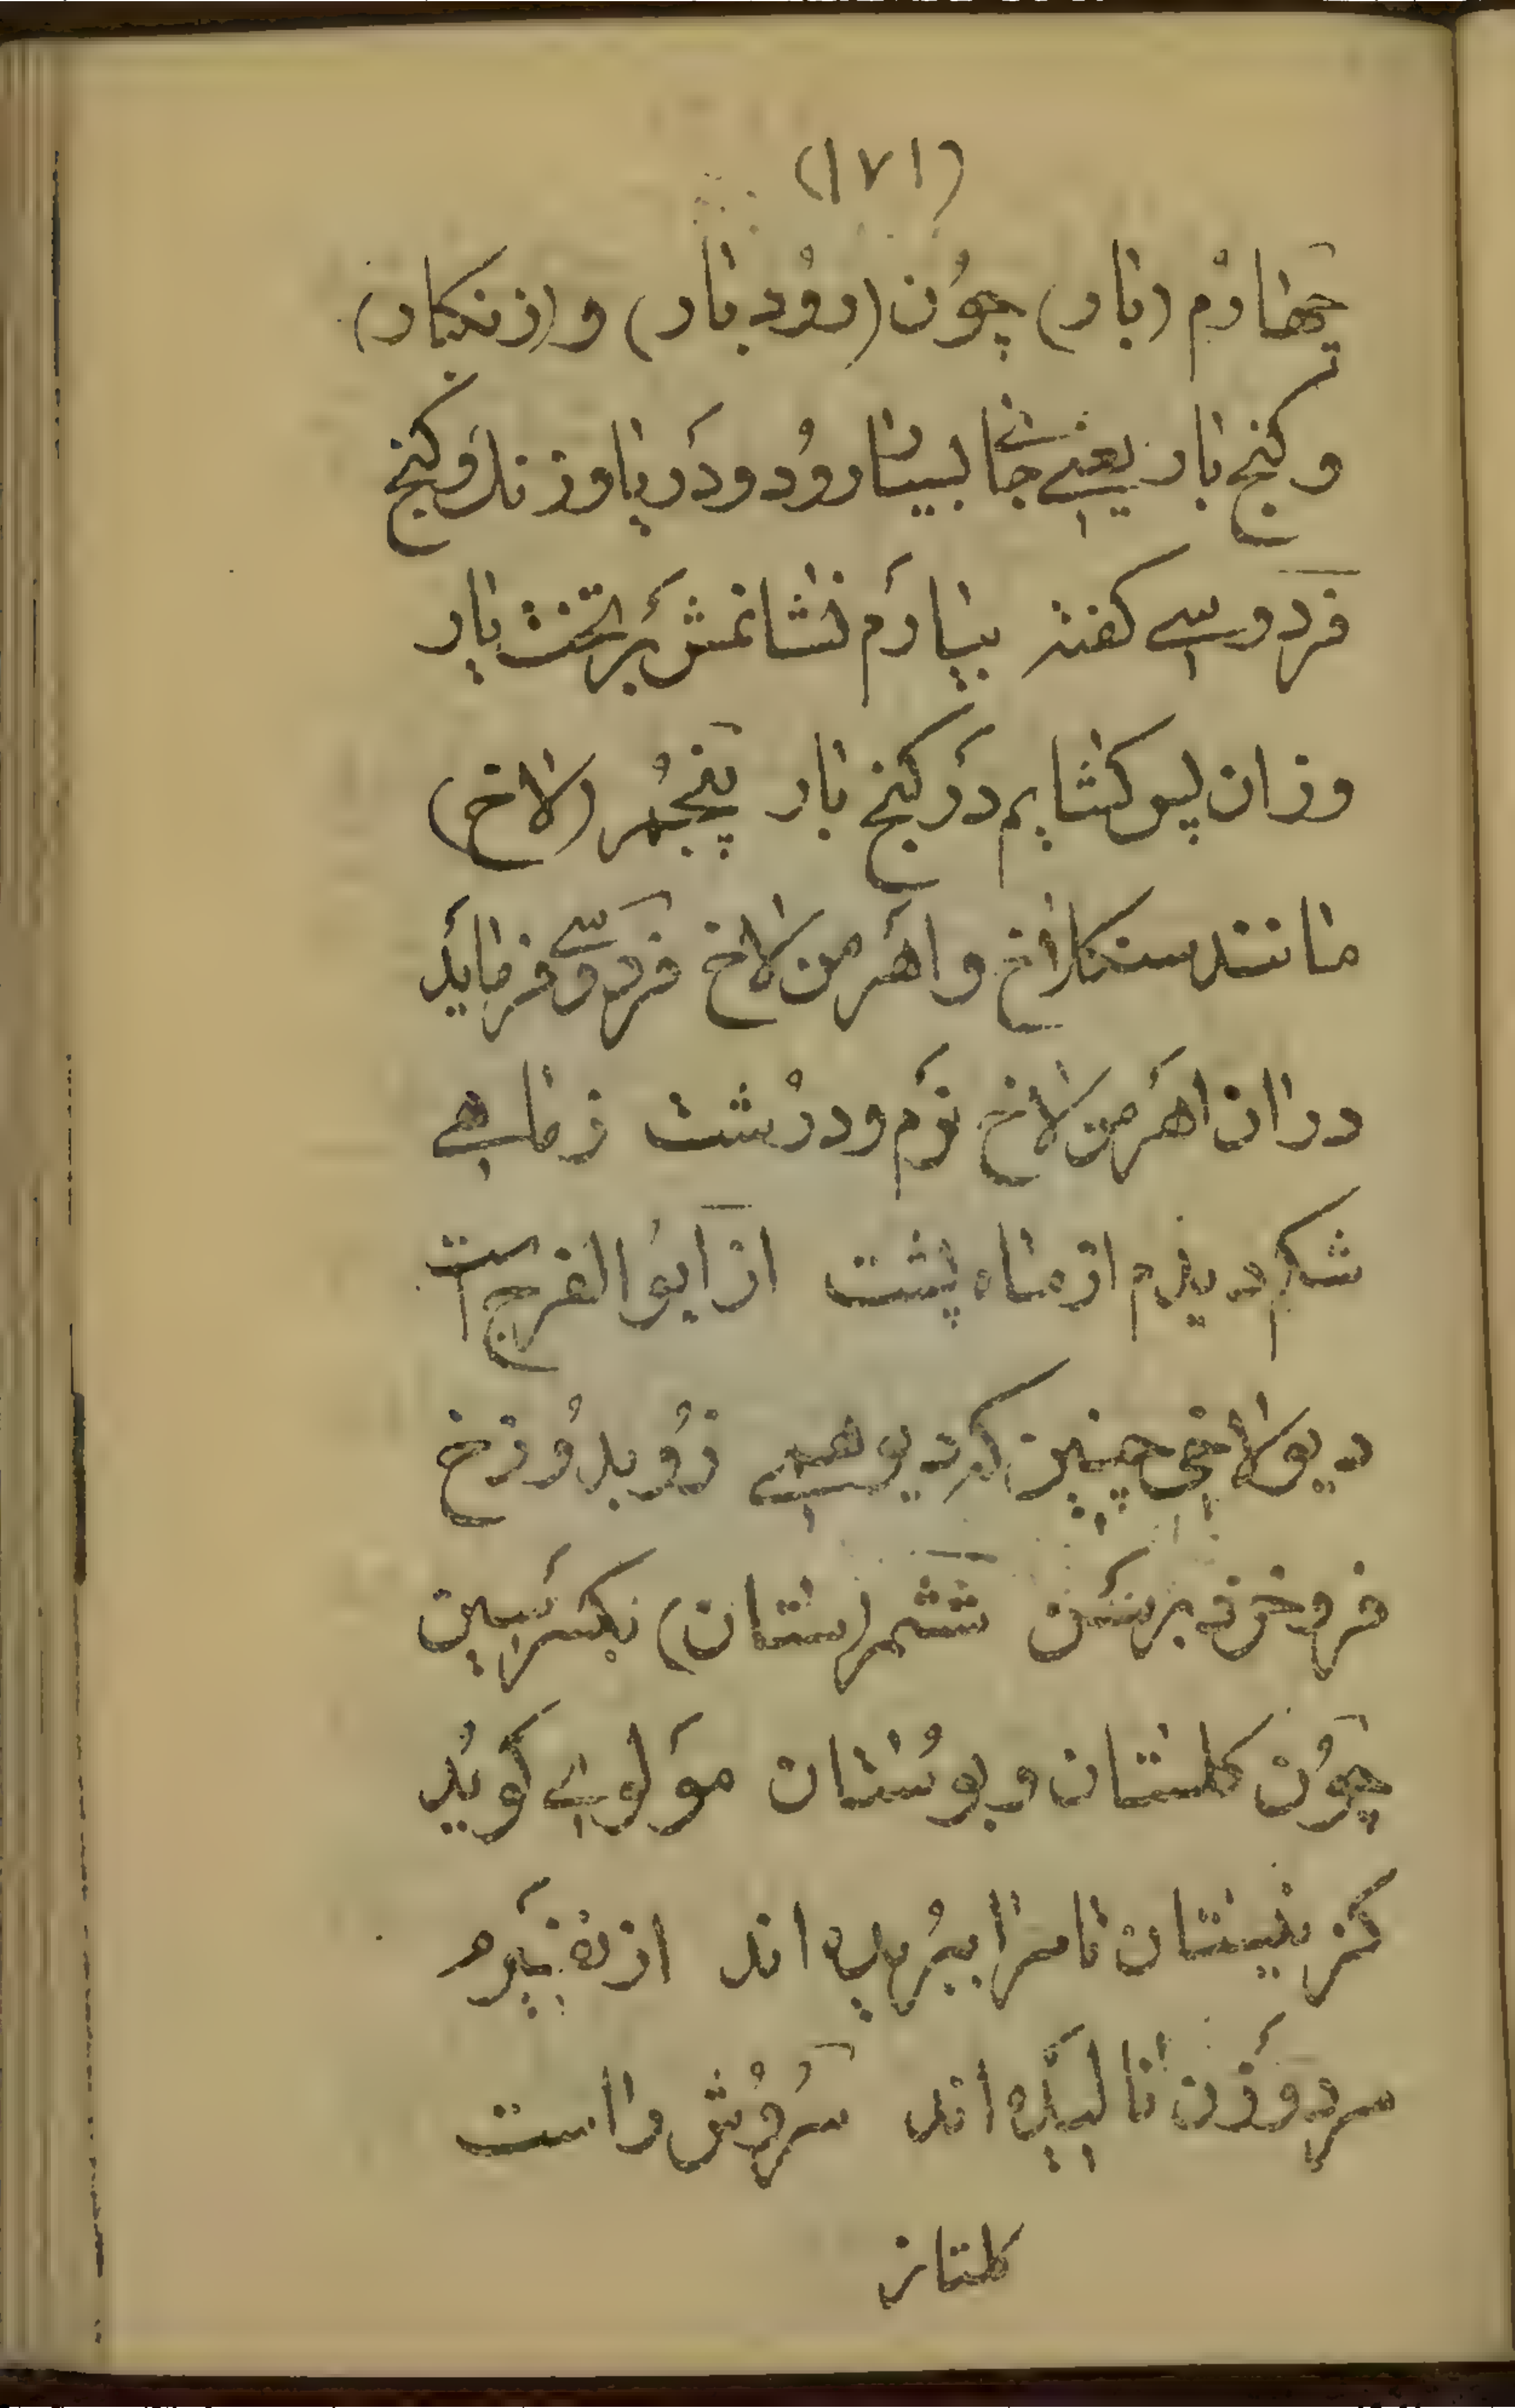 (۱۷۱)
چهارُم (بار) چوُن (روُدبار) و (زنکبار)
و کنج بار یعنی جای بسیار روُد و دَریا و زنك و کنج
فردوسی کفته بیارَم نشانمش بَر تخت یار
وزان پس کشایم دَر کنج بار پنجُم (لاخ)
مانند سنکلاخ و اهرَمن لاخ فردوسی فرمایَد
دران اهرَمن لاخ نرَم و درُشت ز ماهی
شکم دیدم از ماه پشت از ابوُ الفرج است
دیو لاخی چنین که دیو همی زوُ بدوُزخ
فروخزد برسَن ششم (ستان) بکسر سین
چوُن کلستان و بوُستان موَلوی کویَد
کز نیستان تا مرا ببرُیده اند از نفیرَم
مرد و زَن نالیَده اند سَروُش راست
کلتاز